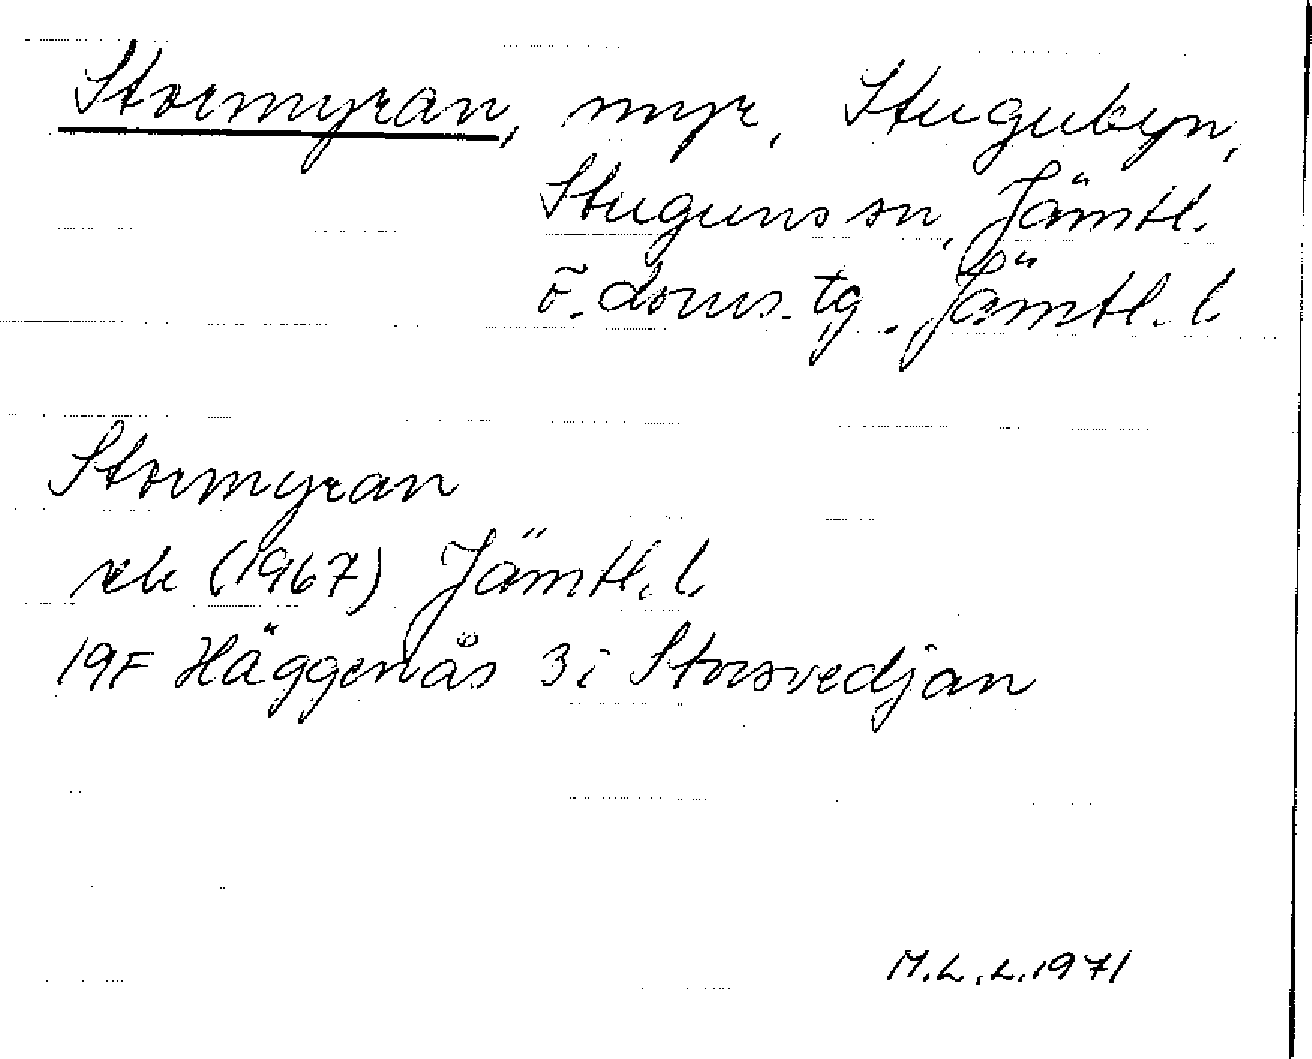 Stormyran, myr, Stugubyn,
Stuguns sn, Jämtl.
ö. doms. tg. Jämtl. l
Stormyran
rek (1967) Jämtl. l.
19F Häggenås 3i Storsvedjan
M.L.L. 1971